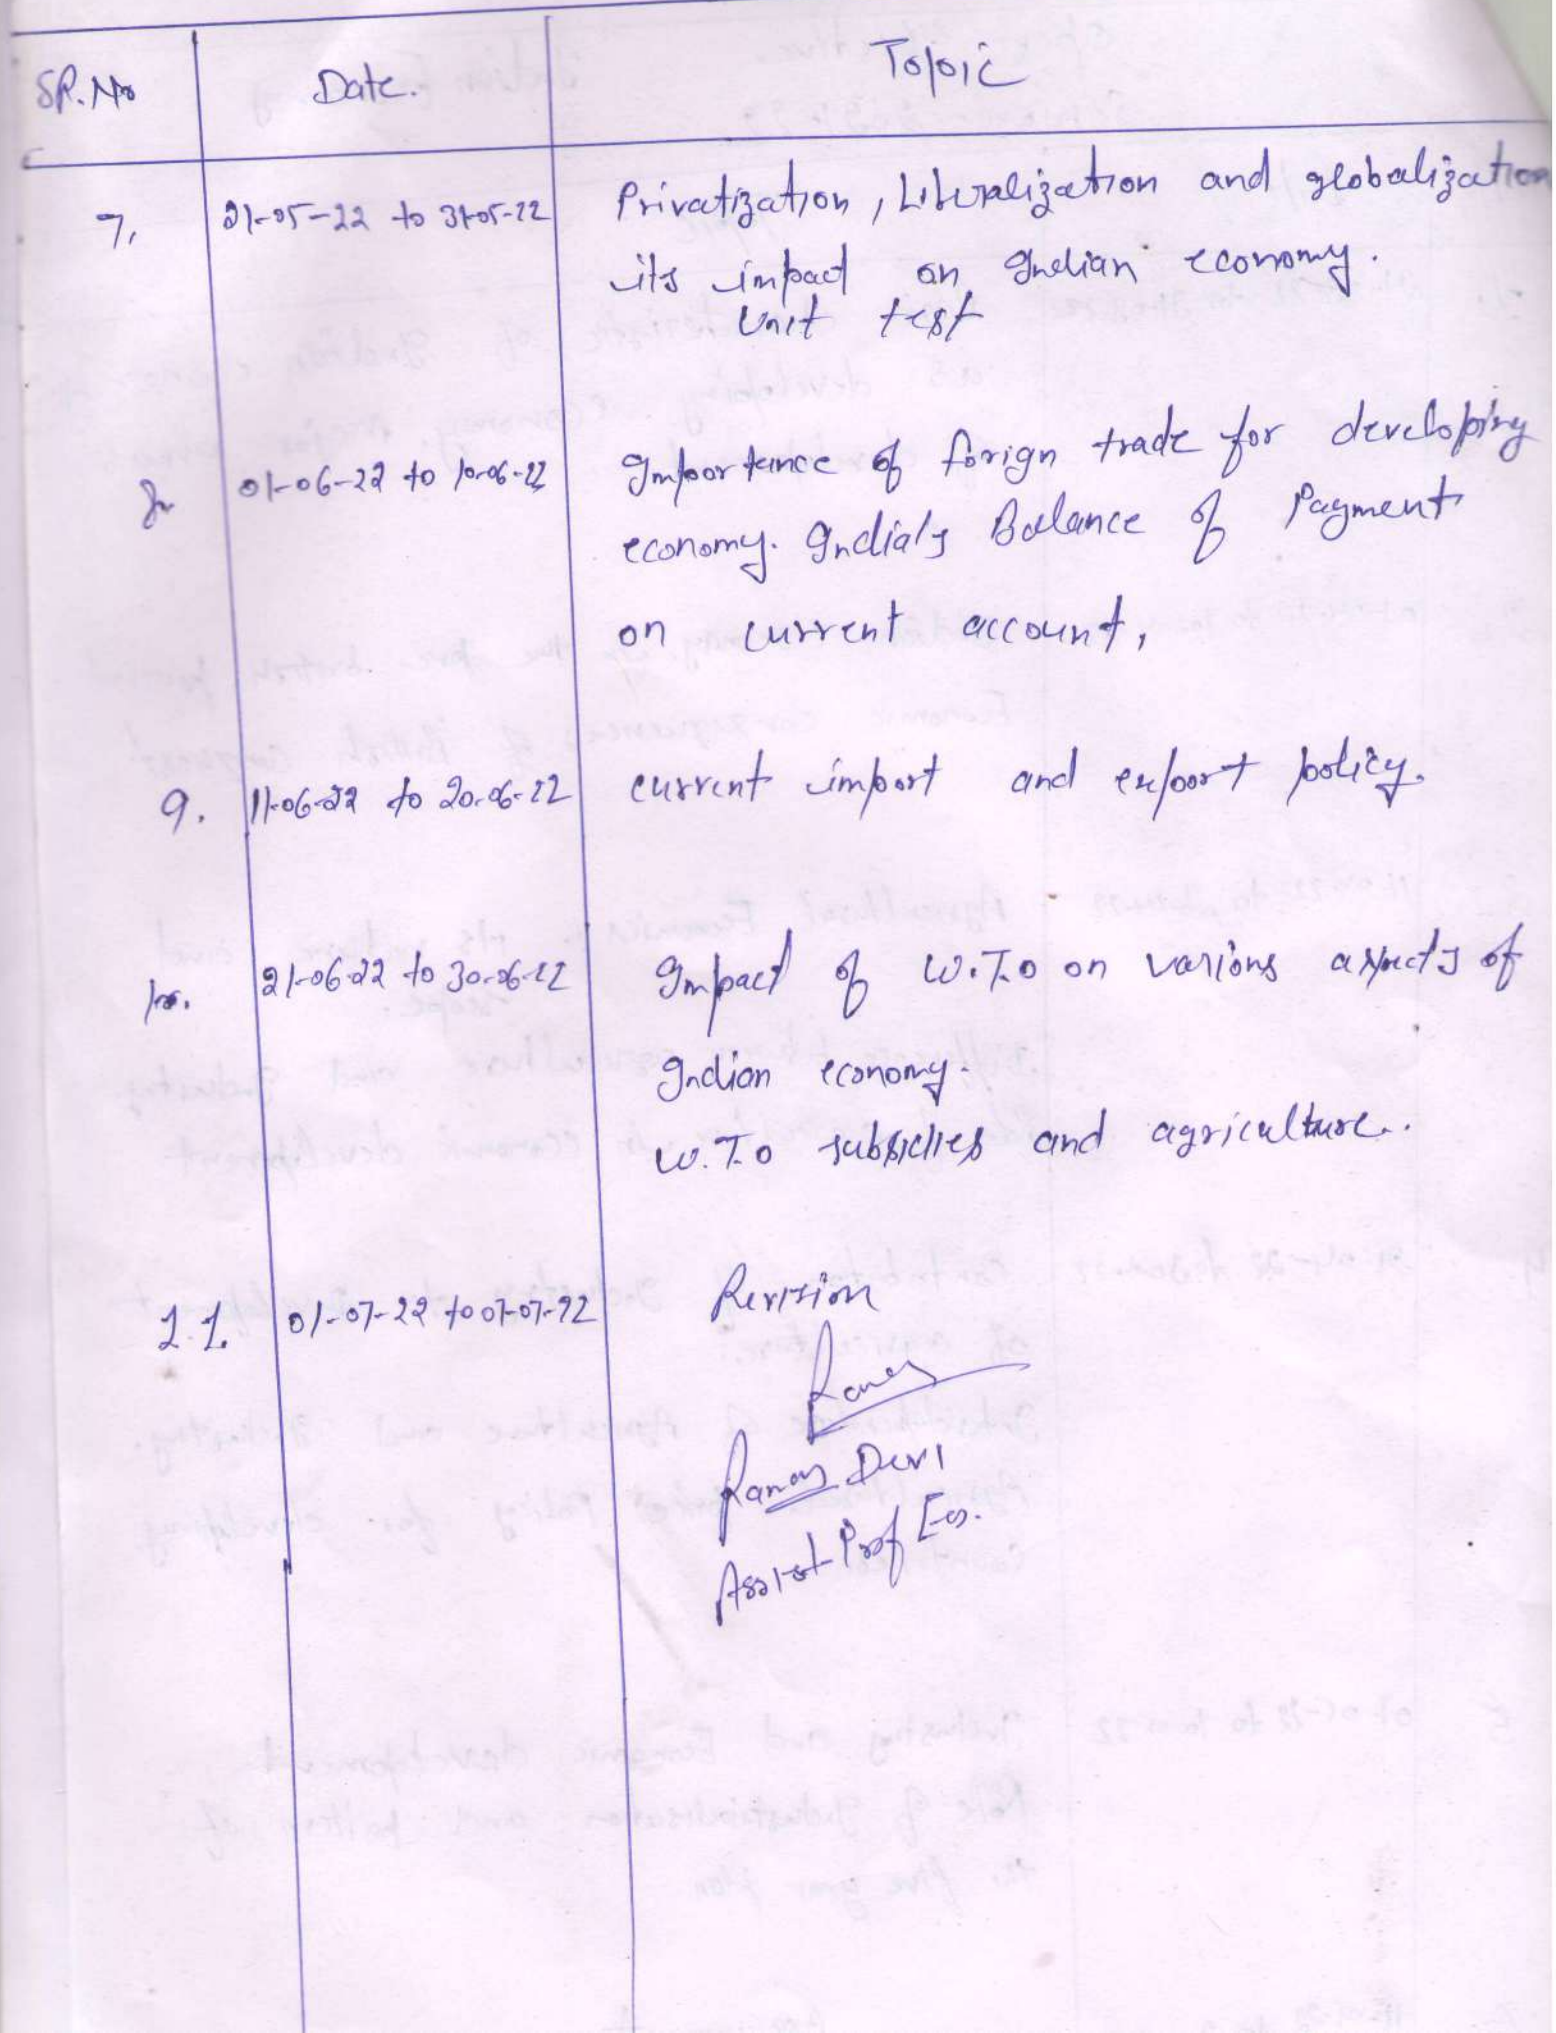 SR.No Date. Topic
7. 21-05-22 to 31-05-22 Privatization, Liberalization and globalization
its impact on Indian economy.
Unit test
8. 01-06-22 to 10-06-22 Importance of forign trade for developing
economy. India's Balance of Payment
on current account,
9. 11-06-22 to 20-06-22 current import and export policy.
10. 21-06-22 to 30-06-22 Impact of W.T.O on various aspects of
Indian economy.
W.T.O subsidies and agriculture..
11. 01-07-22 to 07-07-22 Revision
Devi
Assist Prof Eco.